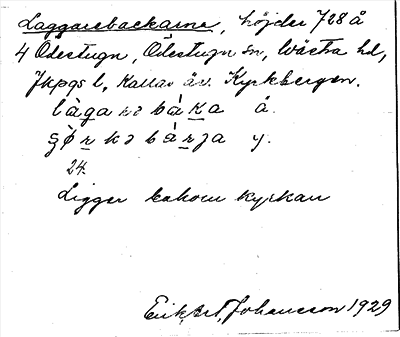 Laggarebackarne, höjder 728 å
4 Ödestugn, Ödestugn sn, Västra hd,
Jkpgs l, Kallas äv. Kyrkbergen.
å.
y.
24.
Ligger bakom kyrkan
Erik Art. Johansson 1929